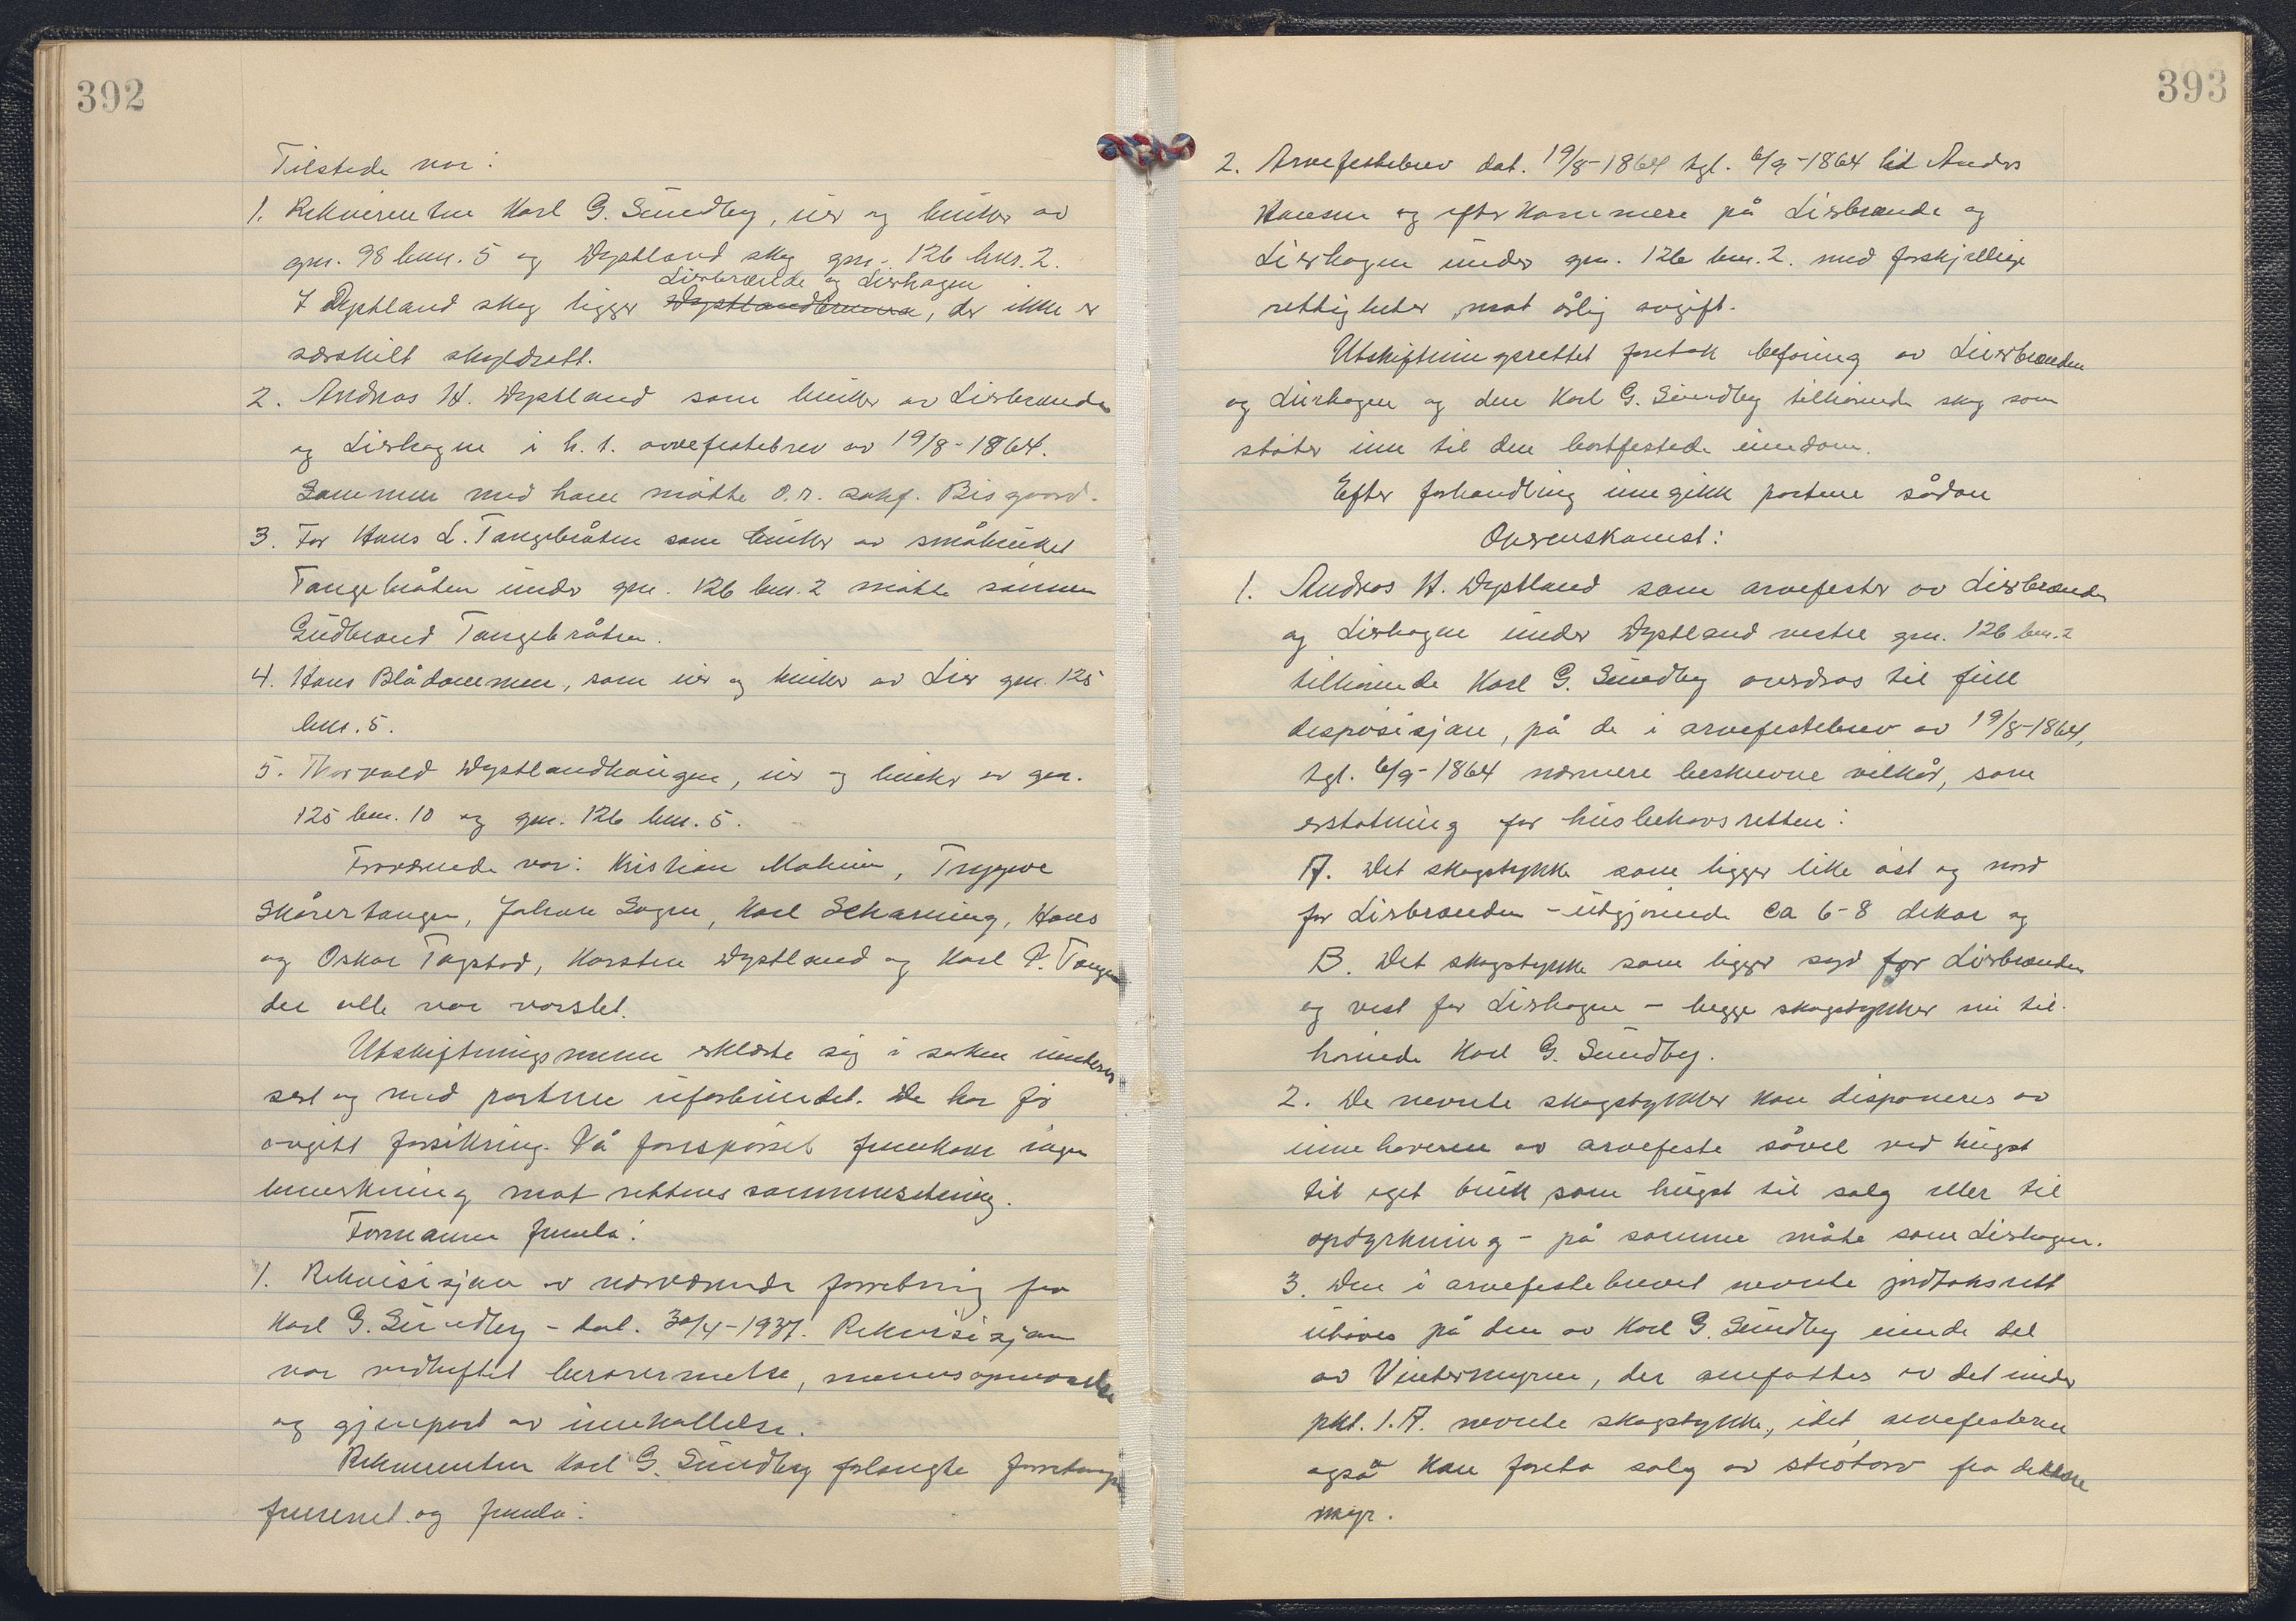 392
Tilstede var:
1. Rekvirenten Karl G. Sundby, eier og bruker av
gnr. 98 bnr. 5 og Dystland skog gnr. 126 bnr. 2.
Lierbrende og Lierhagen
I Dystland skog ligger Dystlandbrenna, der ikke er
særskilt skyldsatt.
2. Andreas H. Dystland som bruker av Lierbrenden
og Lierhagen i h. t. arvefestebrev av 19/8-1864.
Sammen med ham møtte O.r. sakf. Bisgaard.
3. For Hans L. Tangebråten som bruker av småbruket
Tangebråten under gnr. 126 bnr. 2 møtte sønnen
Gudbrand Tangebråten.
4. Hans Blådammen, som eier og bruker av Lier gnr. 125
bnr. 5.
5. Thorvald Dystlandhaugen, eier og bruker av gnr.
125 bnr. 10 og gnr. 126 bnr. 5.
Fraværende var: Kristian , Tryggve
Skårertangen, Johan Sagen, Karl Scharning, Hans
og Oskar Tagstad, Karsten Dystland og Karl P. Tangen
der alle var varslet.
Utskiftningsmennene erklærte sig i saken uinteres
sert og med partene uforbundet. De har før
avgitt forsikring. På forespørsel fremkom ingen
bemerkning mot rettens sammensetning.
Formannen fremla:
1. Rekvisisjon av nærværende forretning fra
Karl G. Sundby - dat. 30/4-1937. Rekvisisjonen
var vedheftet berammelse, mennsopnevnelse
og gjenpart av innkallelse.
Rekvirenten Karl G. Sundby forlangte forretningen
fremmet og fremla:
393
2. Arvefestebrev dat. 19/8-1864 tgl. 6/9-1864 til Anders
Hansen og efterkommere på Lierbrende og
Lierhagen under gnr. 126 bnr. 2. med forskjellige
rettigheter mot årlig avgift.
Utskiftningsrettet foretok befaring av Lierbrenden
og Lierhagen og den Karl G. Sundby tilhørende skog som
støter inn til den bortfestede eiendom.
Efter forhandling inngikk partene sådan
Overenskomst:
1. Andreas H. Dystland som arvefester av Lierbrenden
og Lierhagen under Dystland vestre gnr. 126 bnr. 2
tilhørende Karl G. Sundby overdras til full
disposisjon, på de i arvefestebrev av 19/8-1864,
tgl. 6/9-1864 nærmere beskrevne vilkår, som
erstatning for husbehovsretten:
A. Det skogstykke som ligger like øst og nord
for Lierbrenden - utgjørende ca 6-8 dekar og
B. Det skogstykke som ligger syd for Lierbrenden
og vest for Lierhagen - begge skogstykker nu til-
hørende Karl G. Sundby.
2. De nevnte skogstykker kan disponeres av
innehaveren av arvefeste såvel ved hugst
til eget bruk som hugst til salg eller til
opdyrkning - på samme måte som Lierhagen.
3. Den i arvefestebrevet nevnte jordtaksrett
utøves på den av Karl G. Sundby eiende del
av Vintermyren, der omfattes av det under
pkt. 1. A. nevnte skogstykke, idet arvefesteren
også kan foreta salg av strøtorv fra denne
myr.